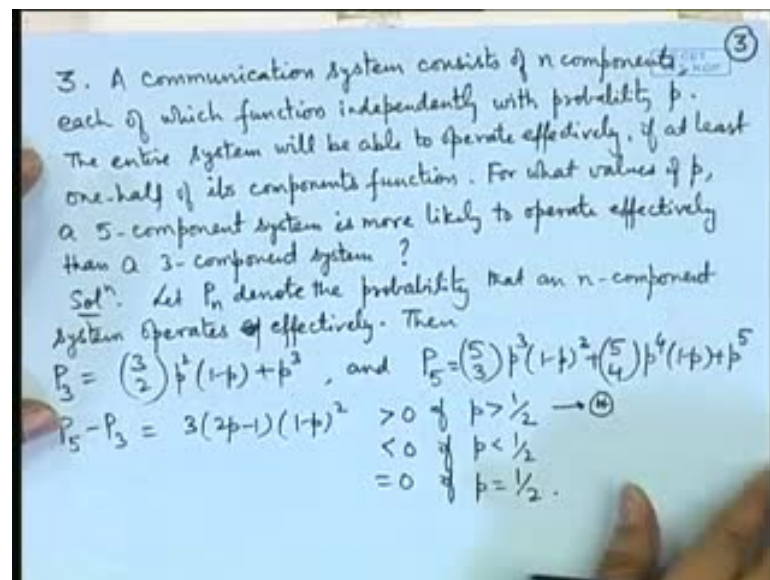 ③
3. A communication system consists of n components,
each of which function independently with probability p.
The entire system will be able to operate effectively, if at least
one-half of its components function. For what values of p,
a 5-component system is more likely to operate effectively
than a 3-component system ?
Solⁿ. Let Pₙ denote the probability that an n-component
system operates effectively. Then
P₃ = (3 2) p²(1-p) + p³, and P₅ = (5 3) p³(1-p)² + (5 4) p⁴(1-p) + p⁵
P₅ - P₃ = 3(2p-1)(1-p)² >0 if p > 1/2 → ⊛
<0 if p < 1/2
=0 if p = 1/2.